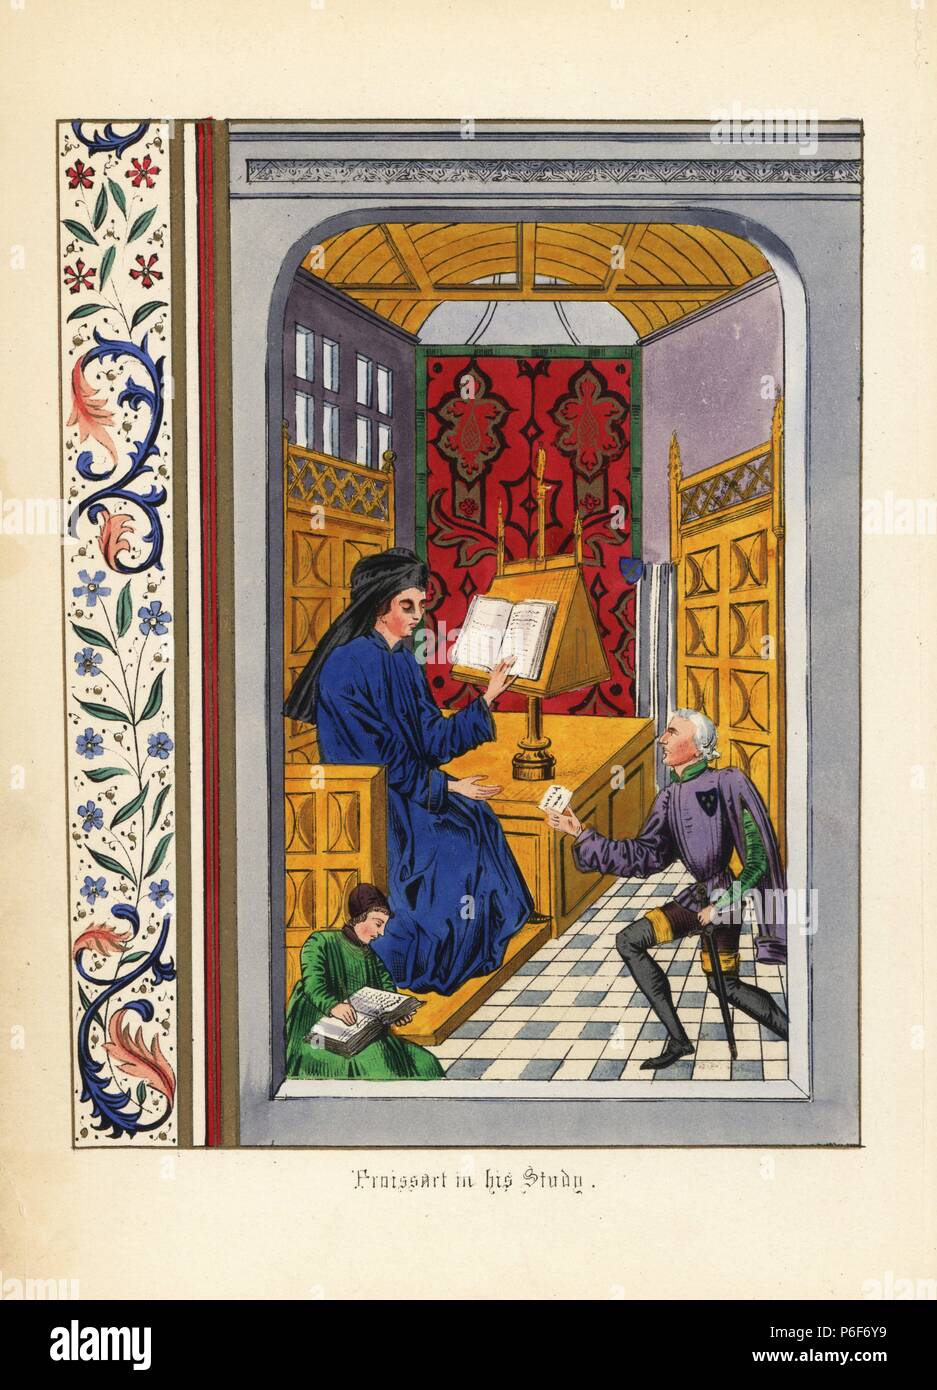 Froissart in his Study.
alamy
Image ID: P6F6Y9
www.alamy.com